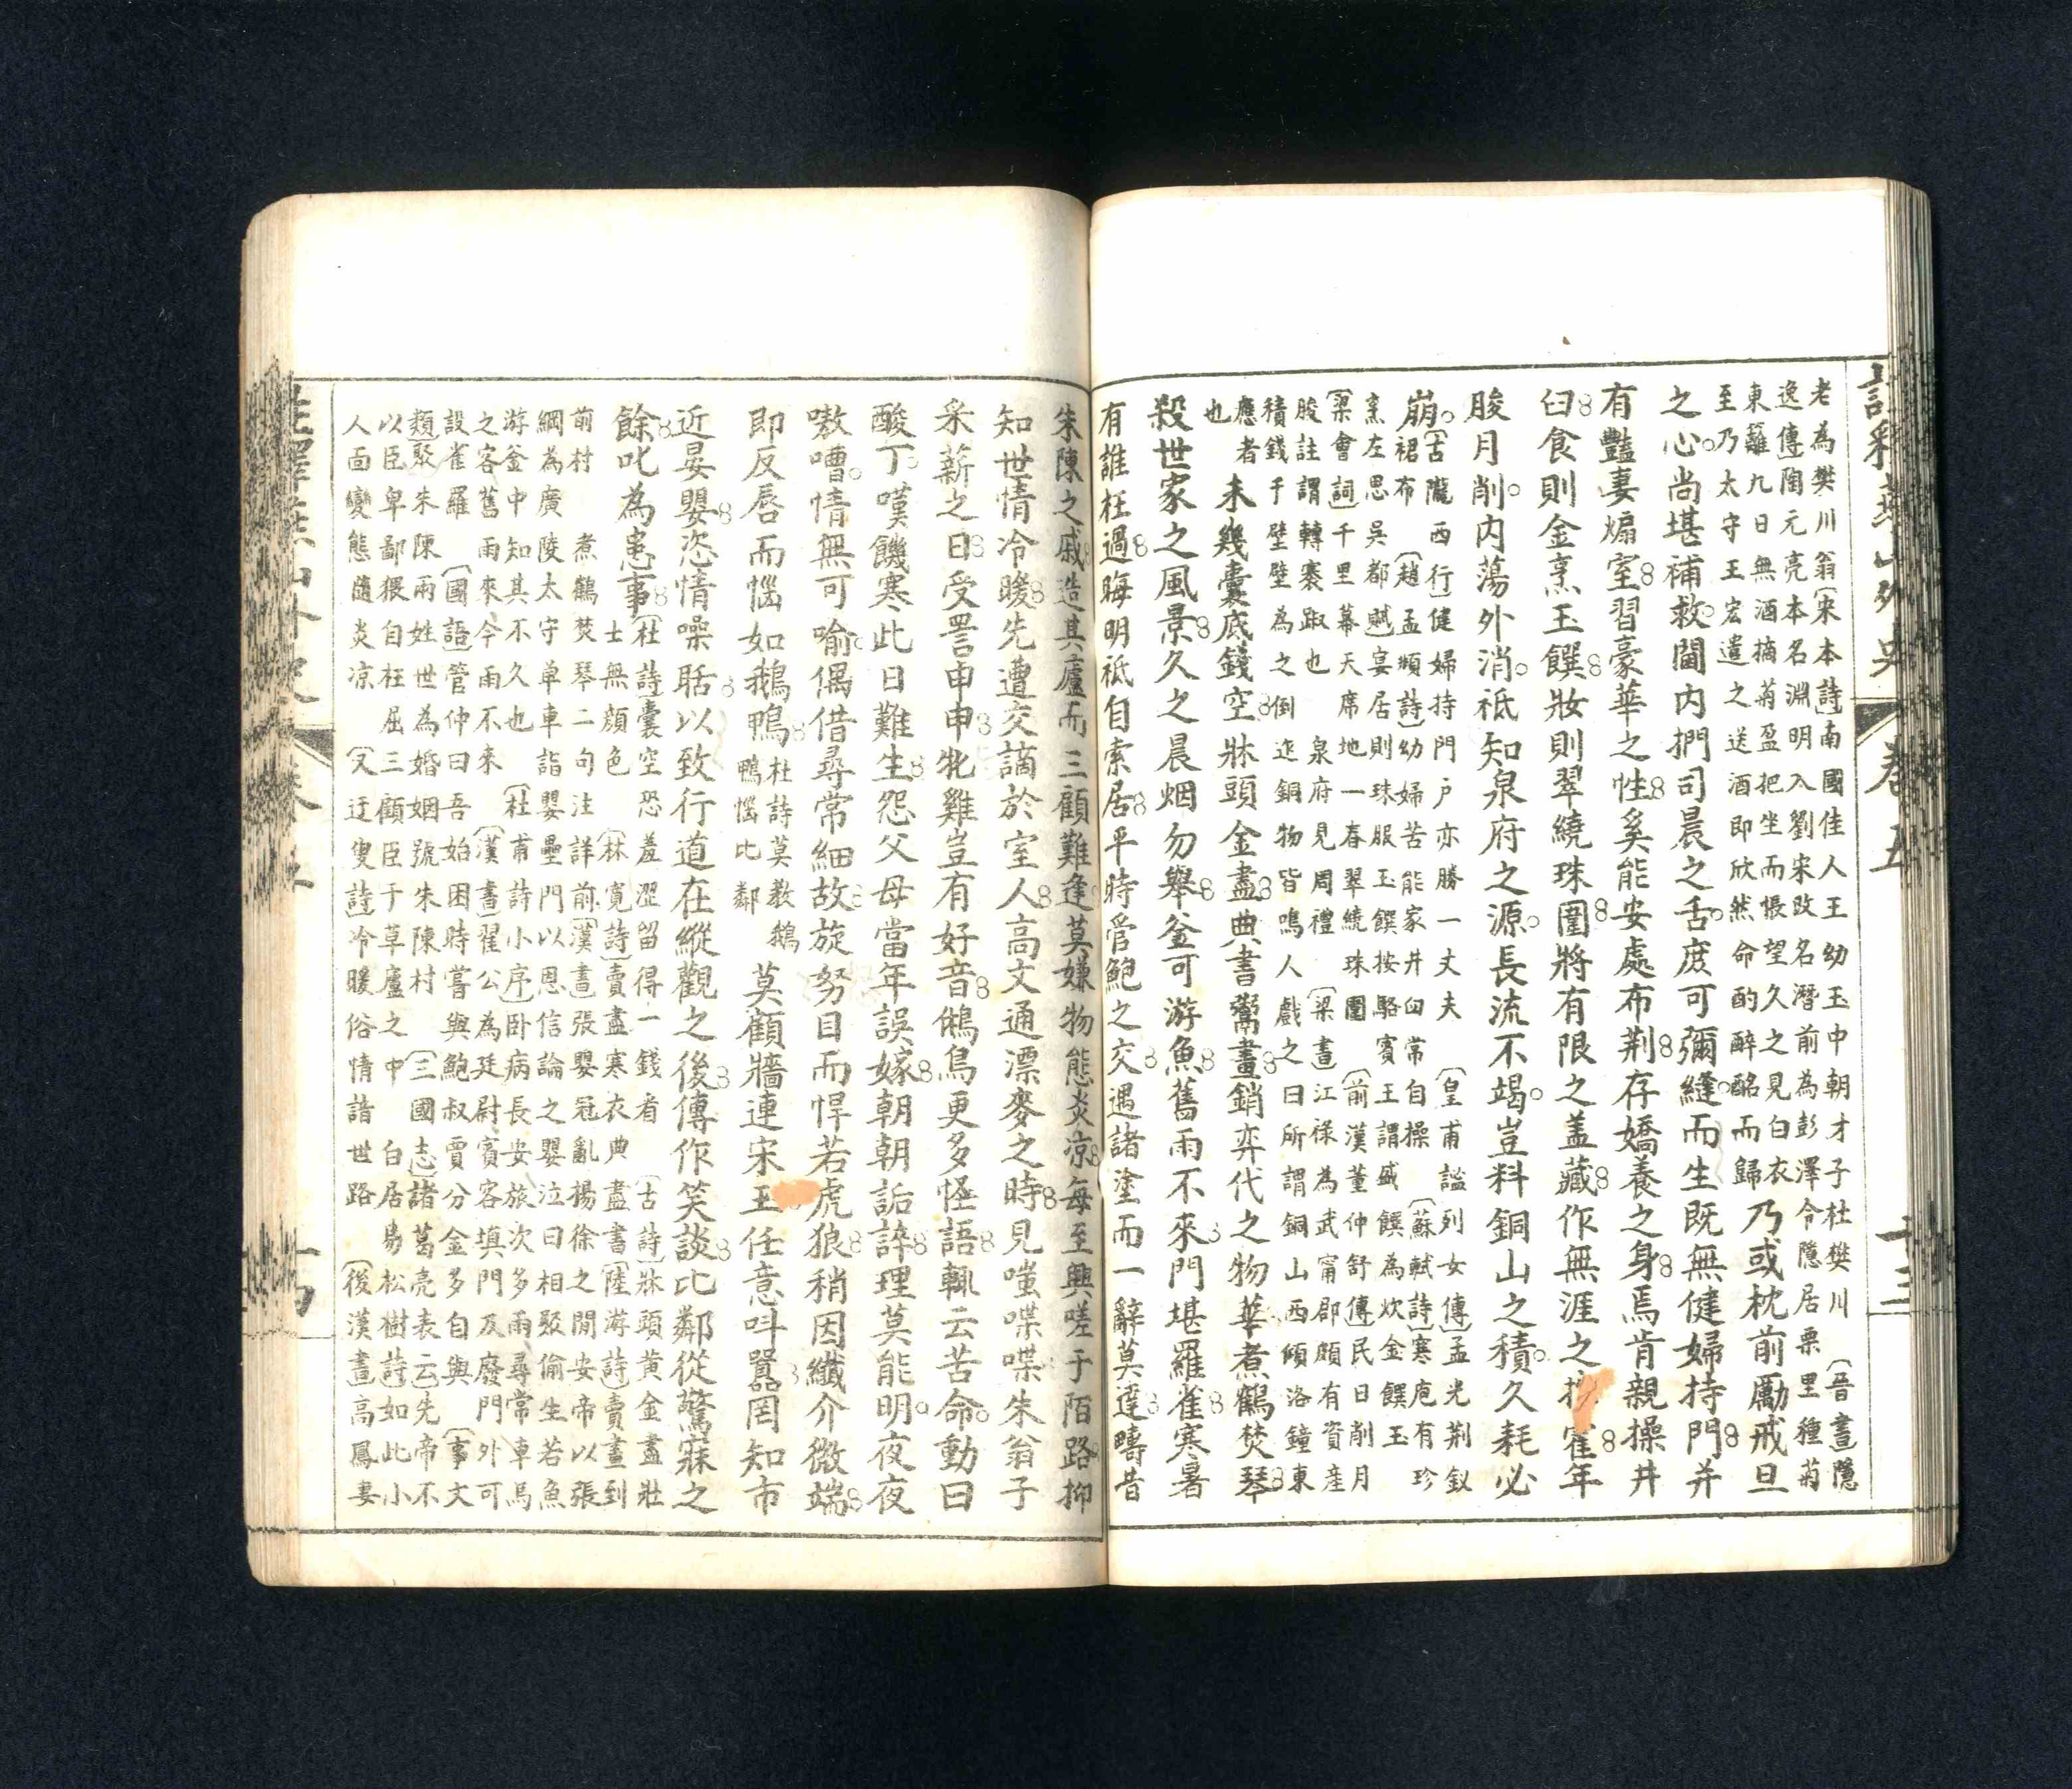 註釋燕山外史 卷五 十三
老為樊川翁〔宋本詩〕南國佳人王幼玉中朝才子杜樊川 〔晉書隱
逸傳〕陶元亮本名淵明入劉宋改名潛前為彭澤令隱居栗里種菊
東籬九日無酒摘菊盈把坐而悵望久之見白衣
至乃太守王宏遣之送酒即欣然命酌醉酩而歸
乃或枕前勵戒旦
之心尚堪補救閫内捫司晨之舌庶可彌縫而生既無健婦持門并
有豔妻煽室習豪華之性奚能安處布荆存嬌養之身焉肯親操井
臼食則金烹玉饌妝則翠繞珠圍將有限之盖藏作無涯之霍年
朘月削内蕩外消祗知泉府之源長流不竭豈料銅山之積久耗必
崩
〔古隴西行〕健婦持門户亦勝一丈夫 〔皇甫謐列女傳〕孟光荆釵
裙布 〔趙孟頫詩〕幼婦苦能家井臼常自操 〔蘇軾詩〕寒庖有珍
烹左思吳都賦〕宴居則珠服玉饌按駱賓王謂盛饌為炊金饌玉
〔梁會詞〕千里幕天席地一春翠繞珠圍 〔前漢董仲舒傳〕民日削月
朘註謂轉褰踧也 泉府見周禮 〔梁書〕江祿為武甯郡頗有資産
積錢于壁壁為之倒迮銅物皆鳴人戲之曰所謂銅山西傾洛鐘東
應者
也
未幾囊底錢空牀頭金盡典書鬻畫銷弈代之物華煮鶴焚琴
殺世家之風景久之晨烟勿舉釜可游魚舊雨不來門堪羅雀寒暑
有誰枉過晦明祗自索居平時管鮑之交遇諸塗而一辭莫達疇昔
朱陳之戚造其廬而三顧難逢莫嫌物態炎凉每至興嗟于陌路抑
知世情冷暖先遭交謫於室人高文通漂麥之時見嗤喋喋朱翁子
采薪之日受詈申申牝雞豈有好音鵂鳥更多怪語輒云苦命動曰
酸丁嘆饑寒此日難生怨父母當年誤嫁朝朝詬誶理莫能明夜夜
嗷嘈情無可喻偶借尋常細故旋努目而悍若虎狼稍因纖介微端
即反唇而惱如鵝鴨
杜詩莫教鵝
鴨惱比鄰
莫顧牆連宋玉任意呌囂罔知市
近晏嬰恣情噪聒以致行道在縱觀之後傳作笑談比鄰從驚寐之
餘叱為恚事
〔杜詩〕囊空恐羞澀留得一錢看 〔古詩〕牀頭黃金盡壯
士無顔色 〔林寬詩〕賣盡寒衣典盡書〔陸游詩〕賣畫到
前村 煮鶴焚琴二句注詳前〔漢書〕張嬰冦亂揚徐之間安帝以張
綱為廣陵太守單車詣嬰壘門以恩信論之嬰泣曰相聚偷生若魚
游釜中知其不久也 〔杜甫詩小序〕卧病長安旅次多雨尋常車馬
之客舊雨來今雨不來 〔漢書〕翟公為廷尉賓客填門及廢門外可
設雀羅 〔國語〕管仲曰吾始困時嘗與鮑叔賈分金多自與 〔事文
類聚〕朱陳兩姓世為婚姻號朱陳村 〔三國志〕諸葛亮表云先帝不
以臣卑鄙猥自枉屈三顧臣于草廬之中 白居易松樹詩〕如此小
人面變態隨炎凉 〔又迂叟詩〕冷暖俗情諳世路 〔後漢書高鳳妻
註釋燕山外史 卷五 十四